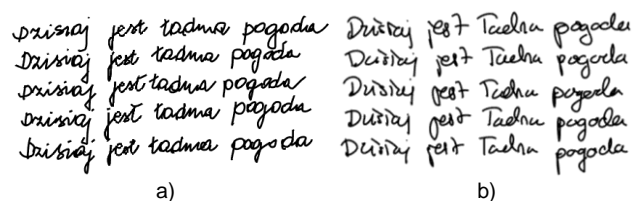 Dzisiaj jest ładna pogoda
Dzisiaj jest ładna pogoda
Dzisiaj jest ładna pogoda
Dzisiaj jest ładna pogoda
Dzisiaj jest ładna pogoda
a)
Dzisiaj jest Ładna pogoda
Dzisiaj jest Ładna pogoda
Dzisiaj jest Ładna pogoda
Dzisiaj jest Ładna pogoda
Dzisiaj jest Ładna pogoda
b)